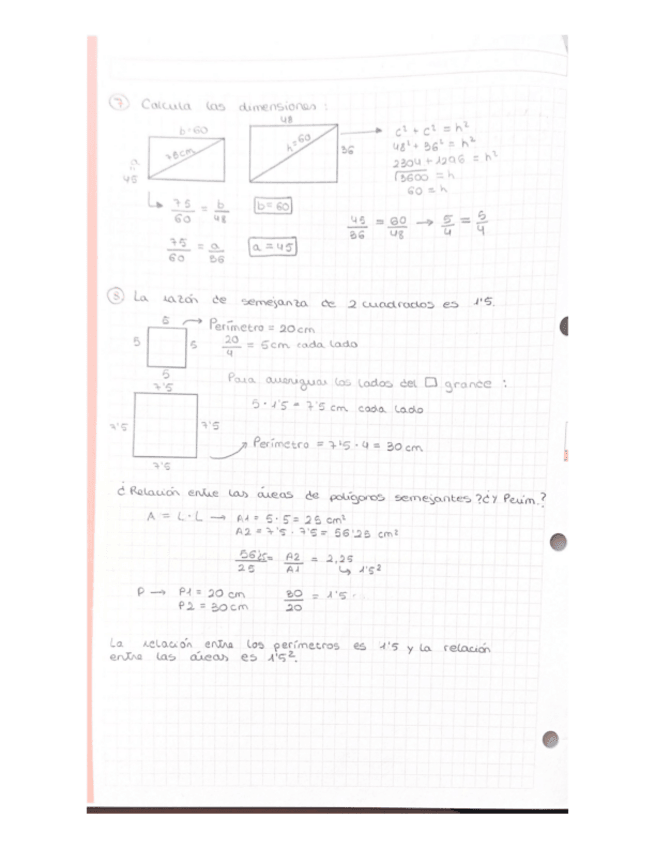 7 Calcula las dimensiones:
b=60
48
75cm
h=60
36
a
=
45
c² + c² = h²
48² + 36² = h²
2304 + 1296 = h²
√3600 = h
60 = h
75/60 = b/48
b=60
75/60 = a/36
a = 45
45/36 = 60/48 → 5/4 = 5/4
8 La razón de semejanza de 2 cuadrados es 1'5.
5
→ Perímetro = 20cm
5
5
20/4 = 5cm cada lado
5
7'5
Para averiguar los lados del □ grande :
5 · 1'5 = 7'5 cm cada lado
7'5
7'5
Perímetro = 7'5 · 4 = 30 cm
7'5
¿Relación entre las áreas de polígonos semejantes? ¿Y Perím.?
A = L · L → A1 = 5 · 5 = 25 cm²
A2 = 7'5 · 7'5 = 56'25 cm²
56'25/25 = A2/A1 = 2,25
↳ 1'5²
P → P1 = 20 cm
30/20 = 1'5
P2 = 30cm
La relación entre los perímetros es 1'5 y la relación
entre las áreas es 1'5².